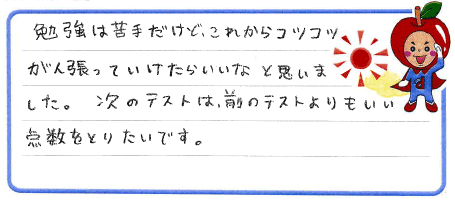 勉強は苦手だけど、これからコツコツ
がん張っていけたらいいなと思いま
した。次のテストは、前のテストよりもいい
点数をとりたいです。